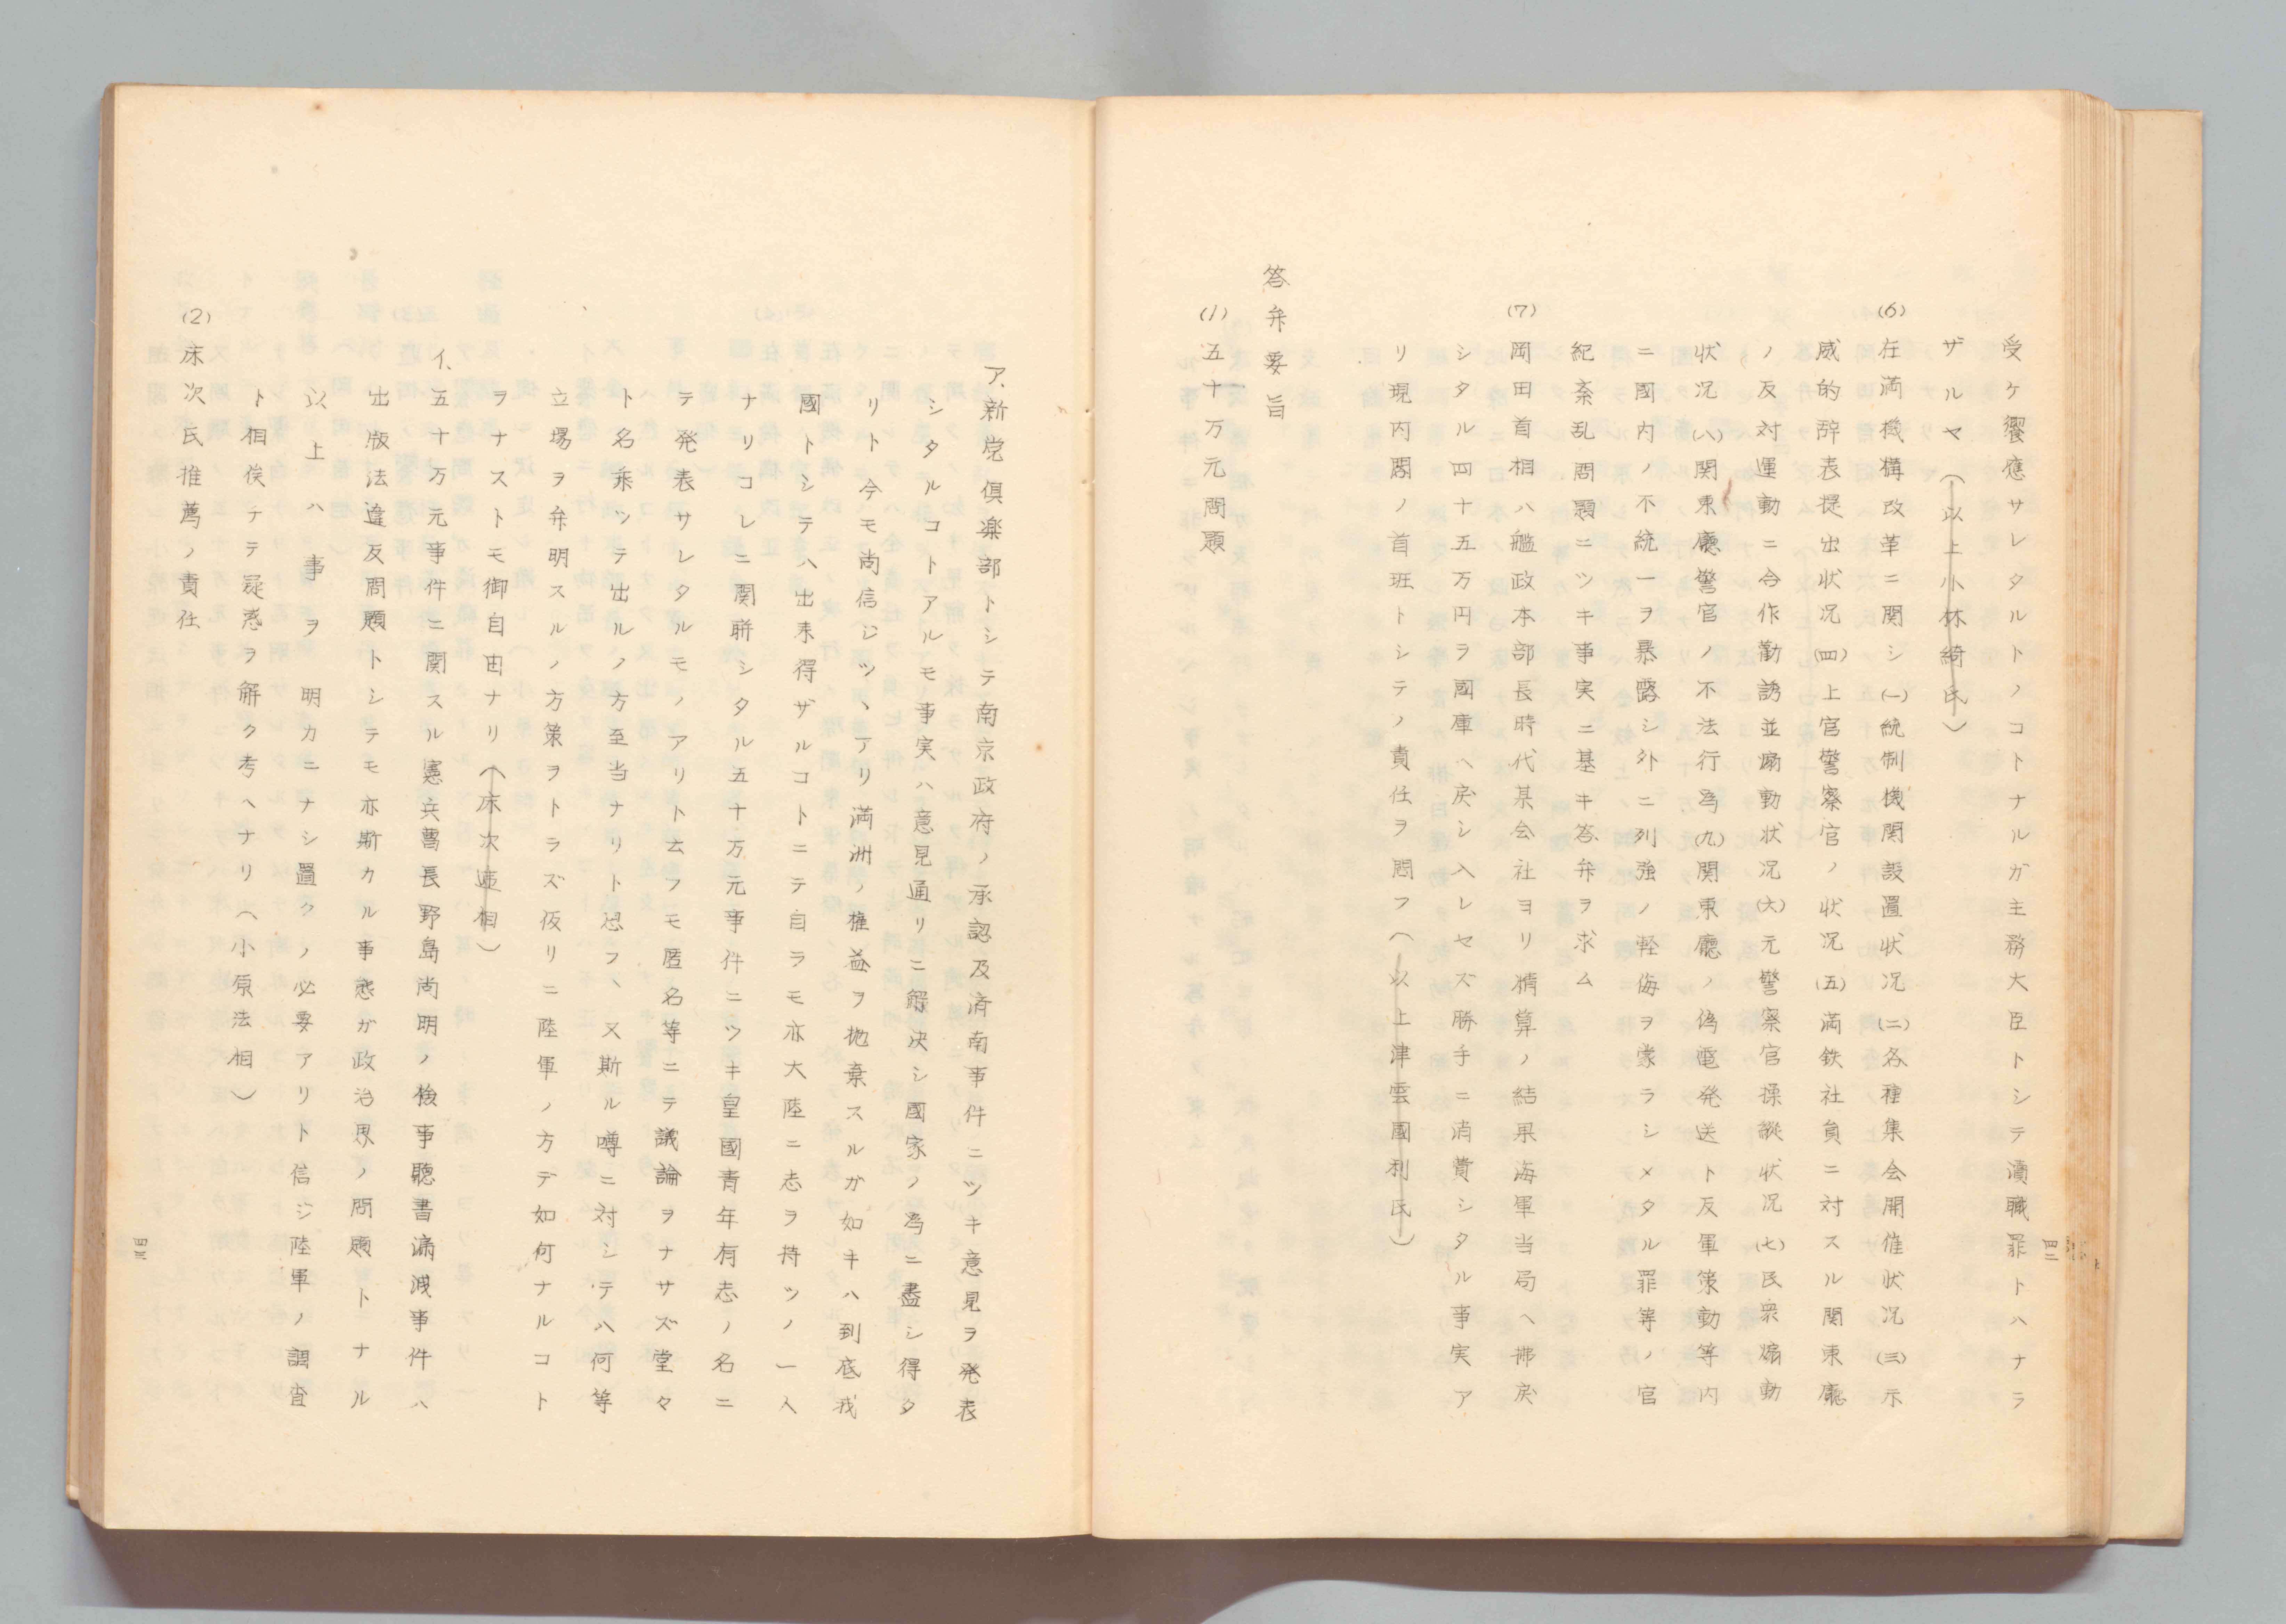 受ケ饗應サレタルトノコトナルガ主務大臣トシテ瀆職罪トハナラ
ザルヤ（以上小林綺氏）
(6) 在満機構改革ニ関シ(一)統制機関設置状況(二)各種集会開催状況(三)示
威的辞表提出状況(四)上官警察官ノ状況(五)満鉄社員ニ対スル関東廳
ノ反対運動ニ合作勸誘並煽動状況(六)元警察官操縦状況(七)民衆煽動
状況(八)関東廳警官ノ不法行為(九)関東廳ノ偽電発送ト反軍策動等内
ニ國内ノ不統一ヲ暴露シ外ニ列強ノ軽侮ヲ蒙ラシメタル罪等ノ官
紀紊乱問題ニツキ事実ニ基キ答弁ヲ求ム
(7) 岡田首相ハ艦政本部長時代某会社ヨリ精算ノ結果海軍当局ヘ拂戻
シタル四十五万円ヲ國庫ヘ戻シ入レセズ勝手ニ消費シタル事実ア
リ現内閣ノ首班トシテノ責任ヲ問フ（以上津雲國利氏）
答弁要旨
(1) 五十万元問題
四二
ア、新党俱楽部トシテ南京政府ノ承認及済南事件ニツキ意見ヲ発表
シタルコトアルモ事実ハ意見通リニ解決シ國家ノ為ニ盡シ得タ
リト今モ尚信ジツヽアリ満洲ノ権益ヲ抛棄スルガ如キハ到底我
國トシテハ出来得ザルコトニテ自ラモ亦大陸ニ志ヲ持ツノ一人
ナリコレニ関聨シタル五十万元事件ニツキ皇國青年有志ノ名ニ
テ発表サレタルモノアリト云フモ匿名等ニテ議論ヲナサズ堂々
ト名乗ツテ出ルノ方至当ナリト思フ、又斯ル噂ニ対シテハ何等
立場ヲ弁明スルノ方策ヲトラズ仮リニ陸軍ノ方デ如何ナルコト
ヲナストモ御自由ナリ（床次逓相）
イ、五十万元事件ニ関スル憲兵曹長野島尚明ノ検事聴書漏洩事件ハ
出版法違反問題トシテモ亦斯カル事態ガ政治界ノ問題トナル
以上ハ事ヲ明カニナシ置クノ必要アリト信ジ陸軍ノ調査
ト相俟チテ疑惑ヲ解ク考ヘナリ（小原法相）
(2) 床次氏推薦ノ責任
四三